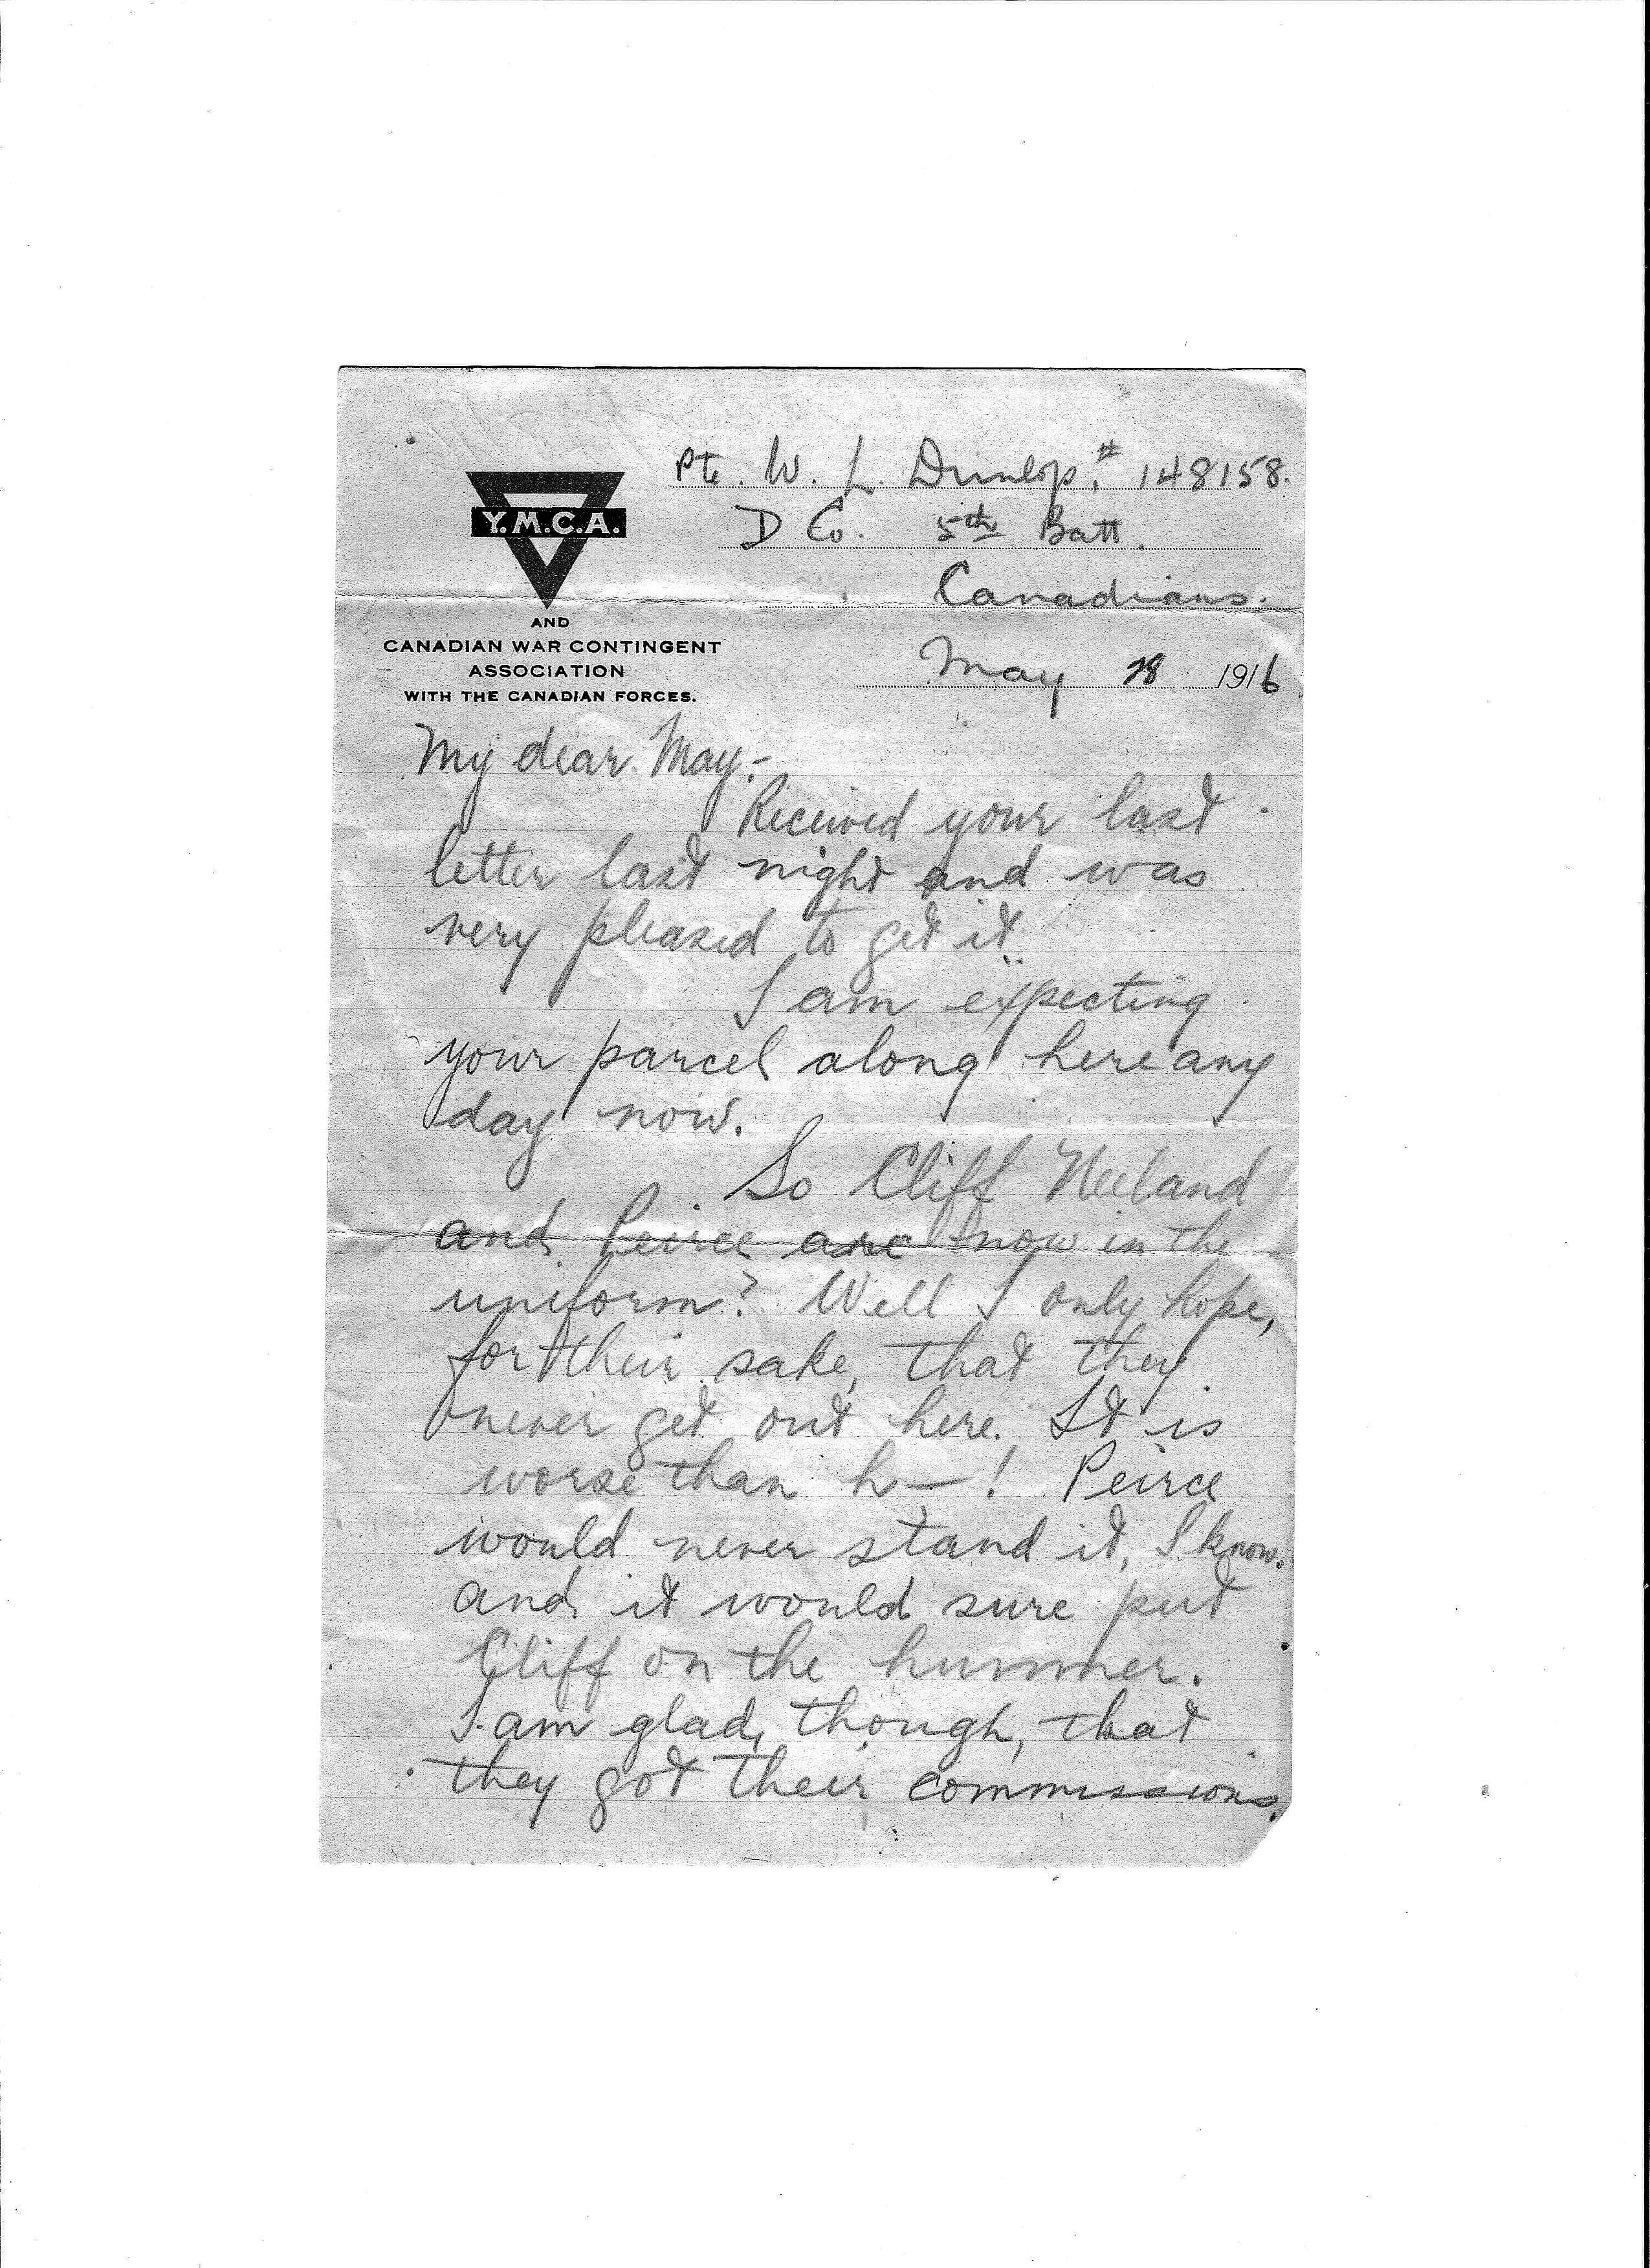 Pte. W. L. Dunlop, # 148158.
Y.M.C.A.
D Co. 5th Batt.
Canadians.
AND
CANADIAN WAR CONTINGENT
ASSOCIATION
WITH THE CANADIAN FORCES.
May 1916
My dear May:-
Received your last
letter last night and was
very pleased to get it.
I am expecting
your parcel along here any
day now.
So Cliff Neeland
and Peirce are now in the
uniform? Well I only hope,
for their sake, that they
never get out here. It is
worse than h—! Peirce
would never stand it, I know.
and it would sure put
Cliff on the hummer.
I am glad, though, that
they got their commissions.